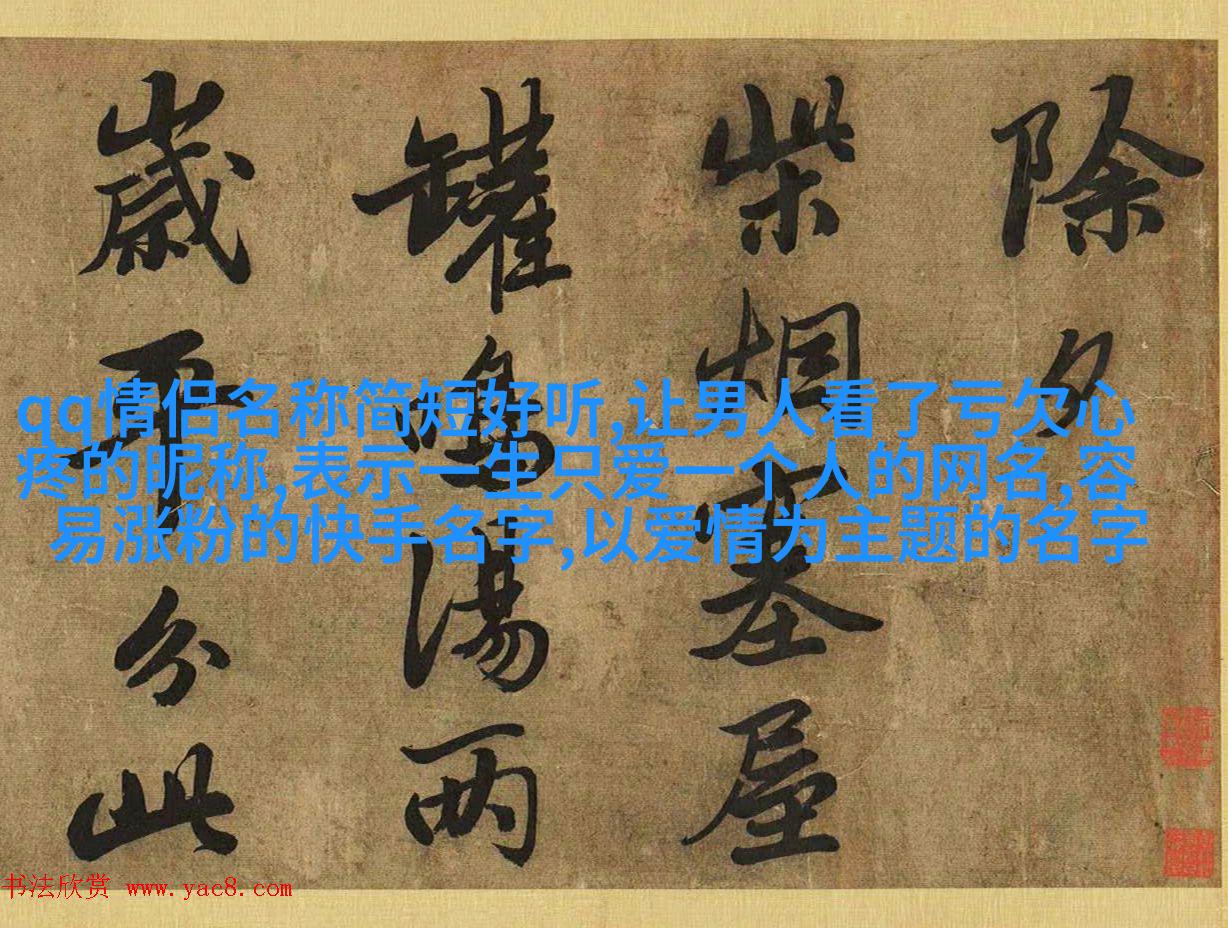 除夕
柴烟塞屋
罐鳴湯兩
歲平分此
qq情侣名称简短好听,让男人看了亏欠心
疼的昵称,表示一生只爱一个人的网名,容
易涨粉的快手名字,以爱情为主题的名字
书法欣赏 www.yac8.com